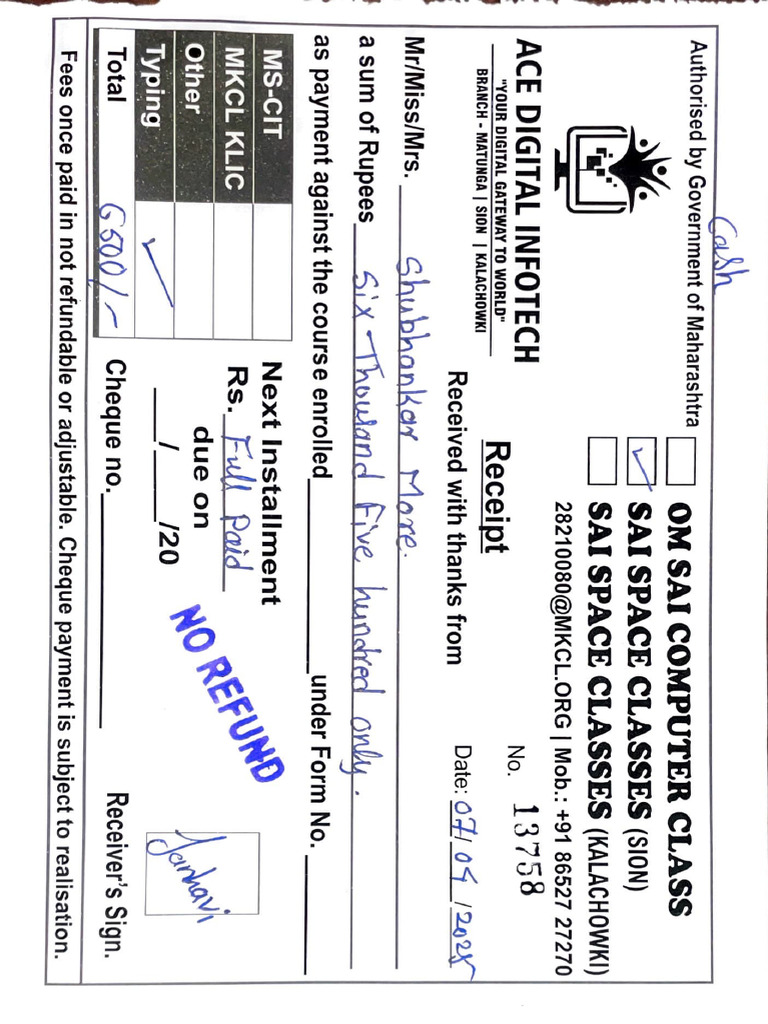 Cash
Authorised by Government of Maharashtra
ACE DIGITAL INFOTECH
"YOUR DIGITAL GATEWAY TO WORLD"
BRANCH - MATUNGA | SION | KALACHOWKI
OM SAI COMPUTER CLASS
✓ SAI SPACE CLASSES (SION)
SAI SPACE CLASSES (KALACHOWKI)
28210080@MKCL.ORG | Mob.: +91 86527 27270
Receipt
No. 13758
Received with thanks from
Date: 07/04/2025
Mr/Miss/Mrs. Shubhankar More.
a sum of Rupees Six Thousand Five hundred only.
as payment against the course enrolled under Form No.
MS-CIT
MKCL KLIC
Other
Typing ✓
Total 6500/-
Next Installment
Rs. Full Paid
due on
/ /20
Cheque no.
NO REFUND
Janhavi
Receiver's Sign.
Fees once paid in not refundable or adjustable. Cheque payment is subject to realisation.